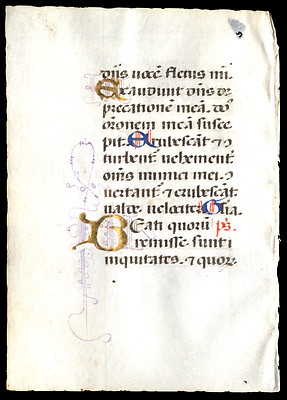 dñs uocē fletus mi
Exaudiuit dñs de
precationē meā. dṡ
orōnem meā susce
pit. Erubescāt ⁊ ↄ
turbent̄ uehement̄
om̄s inimici mei. ↄ
uertant̄ ⁊ erubescāt
ualde uelocit̄. Gl̄ia.
Beati quorū p̄s.
remisse sunt i
niquitates. ⁊ quor̄.